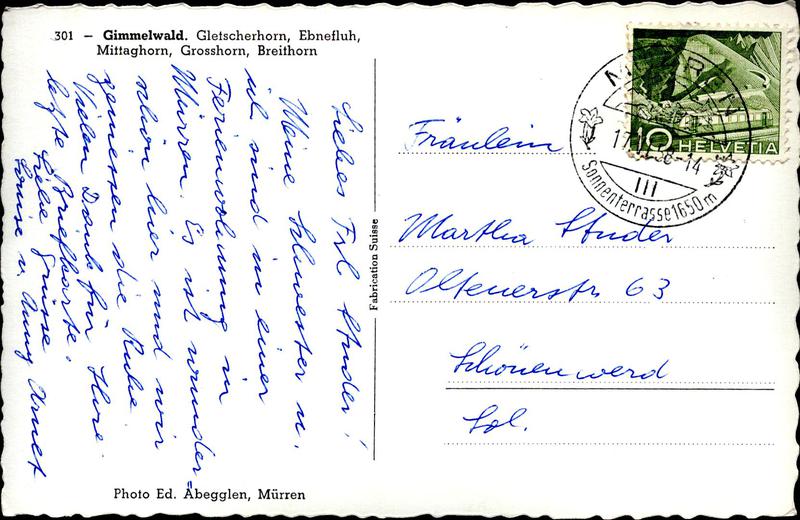 301 — Gimmelwald. Gletscherhorn, Ebnefluh,
Mittaghorn, Grosshorn, Breithorn
Liebes Frl Studer!
Meine Schwester u.
ich sind in einer
Ferienwohnung in
Mürren. Es ist wunder=
schön hier und wir
geniessen die Ruhe
Vielen Dank für Ihre
letzte Briefkarte.
Liebe Grüsse
Louise u. Anny Arnet
Photo Ed. Abegglen, Mürren
Fabrication Suisse
MÜRREN
-14
III
Sonnenterrasse 1650m
10 HELVETIA
Fräulein
Martha Studer
Oltenerstr 63
Schönenwerd
Sol.